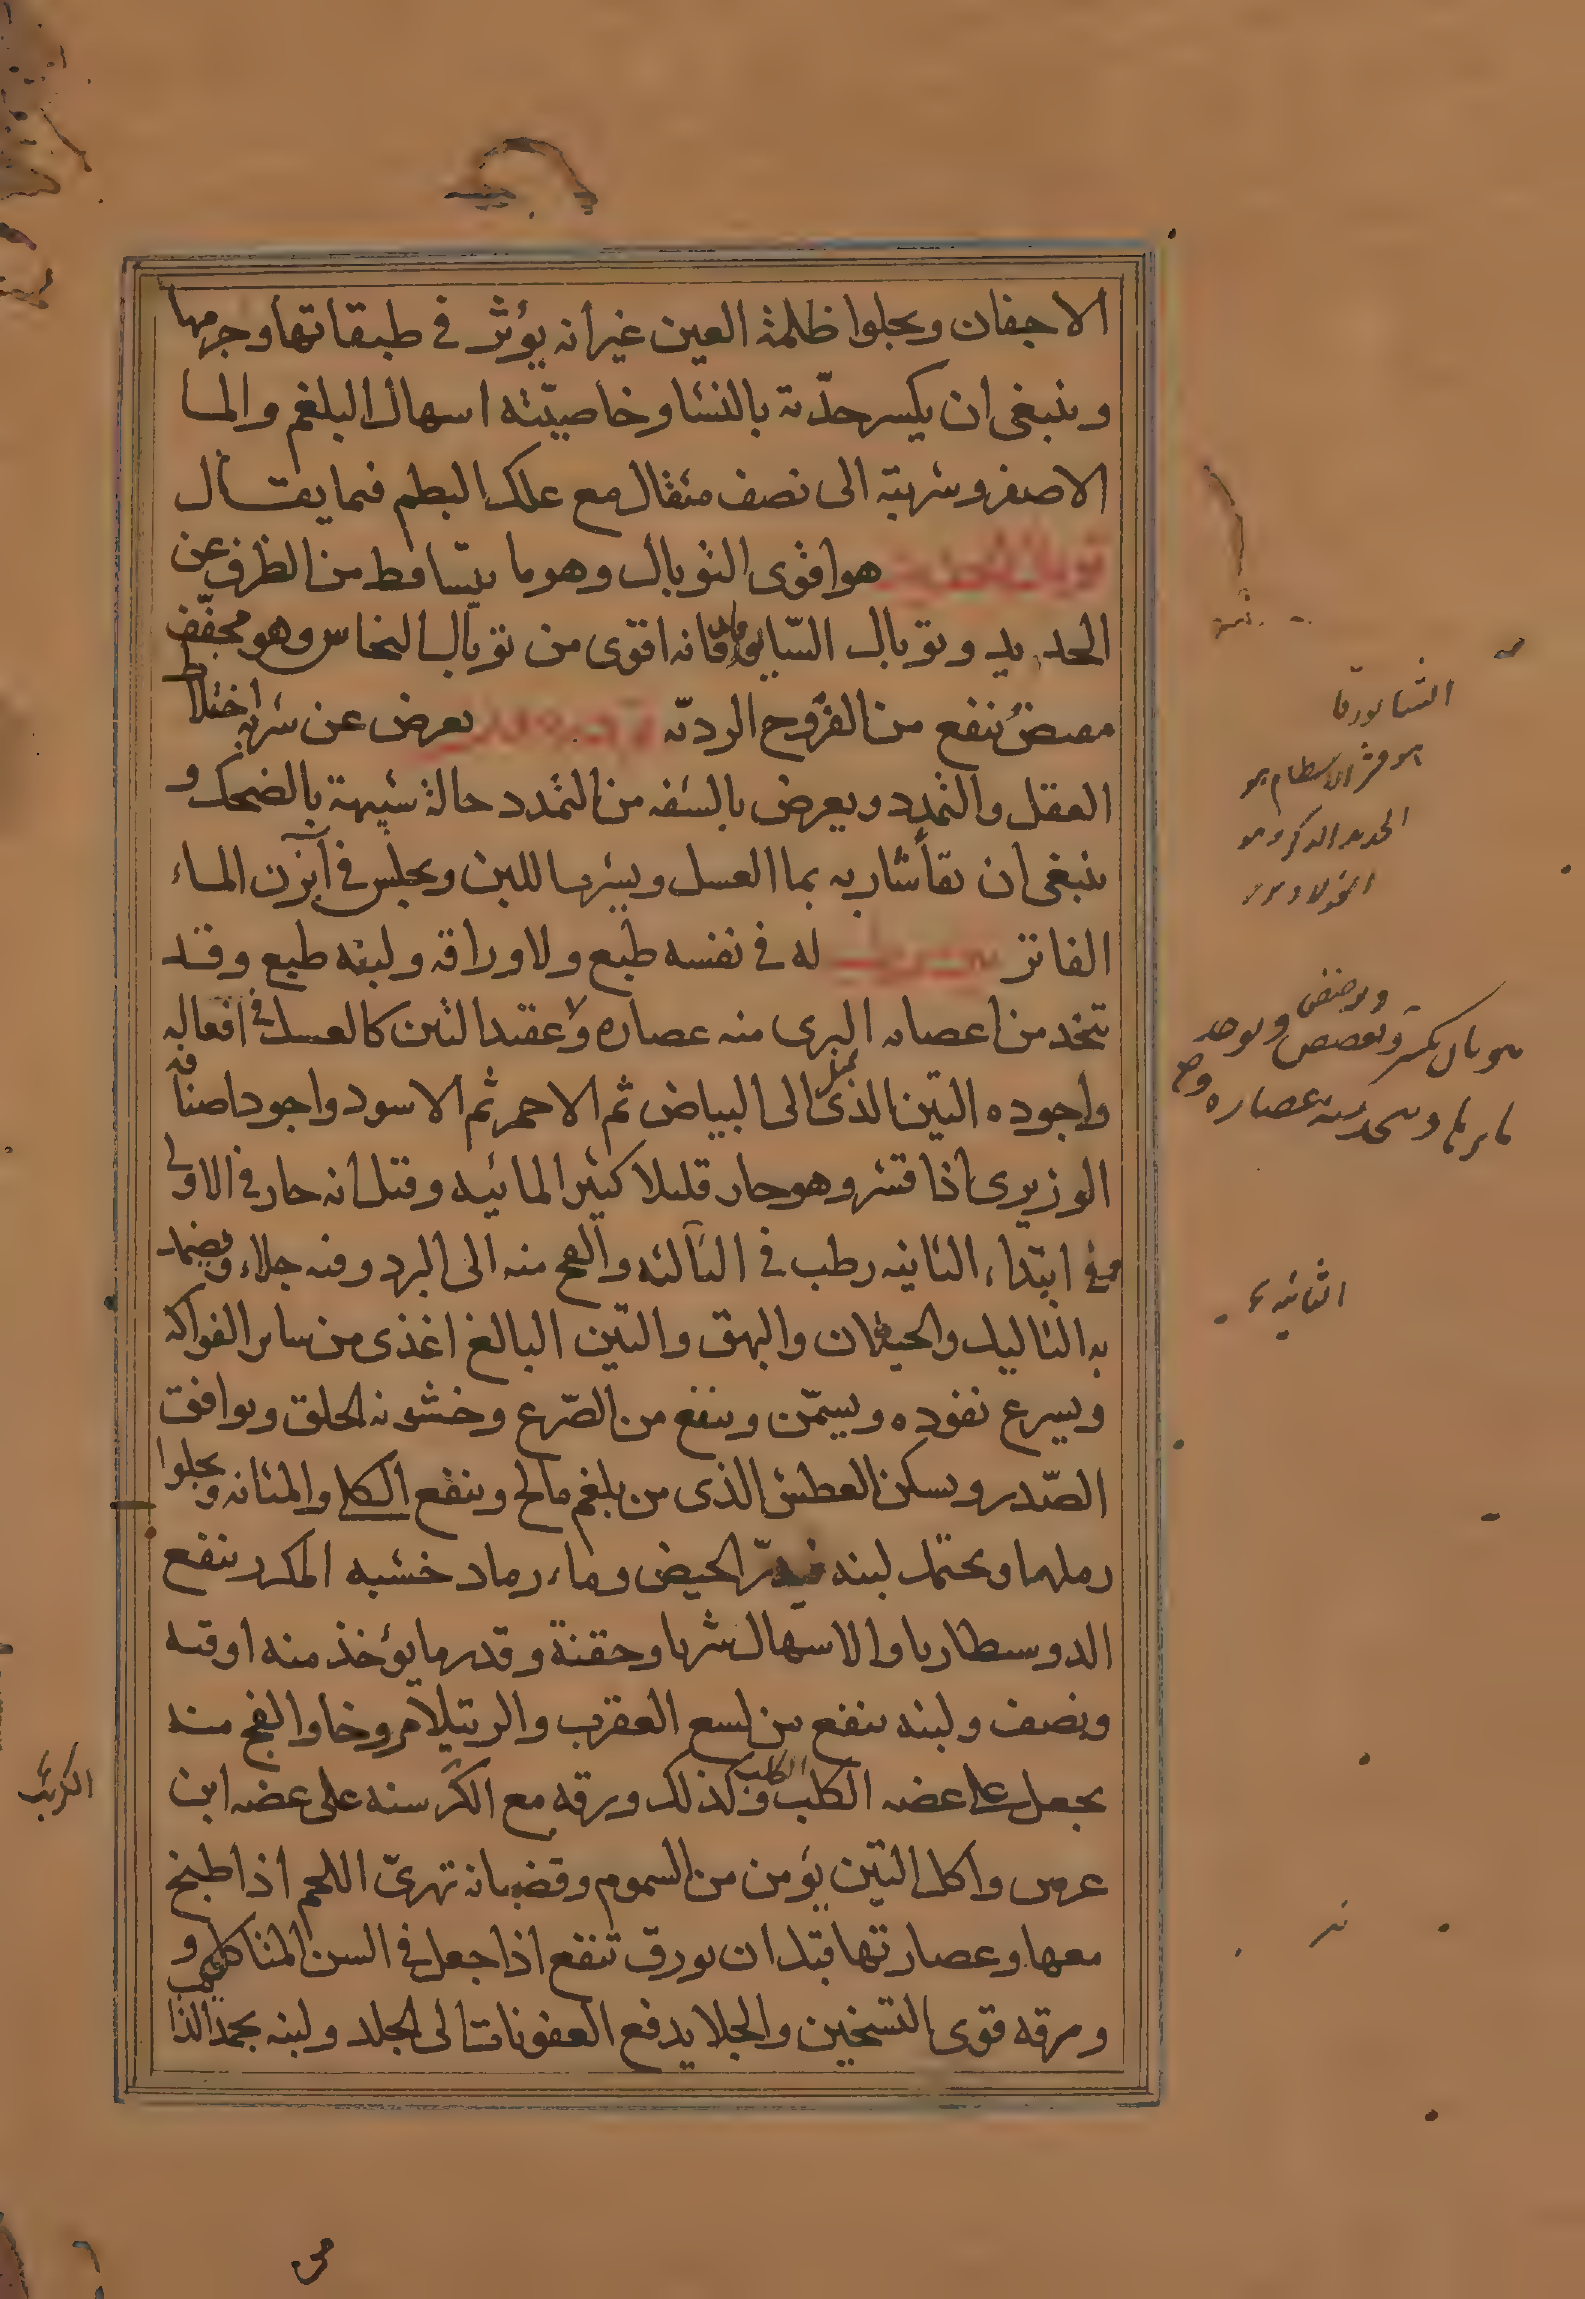 الاجفان ويجلوا ظلمة العين غير انه يؤثر في طبقاتها وجرمها
وينبغي ان يكسر حدّته بالنشا وخاصيّته اسهال البلغم والما
الاصفر وشربته الى نصف مثقال مع علك البطم فيما يقال
توبال الحديد هو اقوى التوبال وهو ما يتساقط من الطرف عن
الحديد وتوبال السّابورقان فانه اقوى من توبال النحاس وهو مجفّف
مصض ينفع من القروح الرديّه يعرض عن شربه اختلاط
العقل والتمدد ويعرض بالشفه من التمدد حالة شبيهة بالضحك و
ينبغي ان تقأ شاربه بما العسل ويشربها اللبن ويجلس في آبزن الماء
الفاتر له في نفسه طبع ولاوراقه ولبنه طبع وقد
تتخد من اعصان البرى منه عصاره وعقيد التين كالعسل في افعاله
واجوده التين الذى الى البياض ثم الاحمر ثم الاسود واجود اصنافه
الوزيرى اذا قشر وهو حار قليلا كثير المائيه وقيل انه حار في الاولى
في ابتداء الثانيه رطب في الثالثه والفج منه الى البرد وفيه جلاء ويضمد
به الثاليل والخيلان والبهق والتين البالغ اغذى من ساير الفواكه
ويسرع نفوده ويسمّن وينفع من الصّرع وخشونه الحلق ويوافق
الصّدر ويسكن العطش الذى من بلغم مالح وينفع الكلا والمثانه ويجلوا
رملهما ويحتمل لبنه فيدرّ الحيض وماء رماد خشبه المكرر ينفع
الدوسطاريا والاسهال شربا وحقنة وقدر ما يؤخذ منه اوقيه
ونصف ولبنه ينفع من لسع العقرب والرتيلا مروخا والفج منه
يجعل على عضه الكلب الكلب وكذلك ورقه مع الكرسنه على عضه ابن
عرس واكل التين يؤمن من السموم وقضبانه تهرىّ اللحم اذا طبخ
معها وعصارتها قبل ان يورق تنفع اذا جعل في السن المتاكله و
ومرقه قوى التسخين والجلا يدفع العفونات الى الجلد ولبنه يجمد الذا
الشابورقا
الحديد الذكر وهو
الثانيه